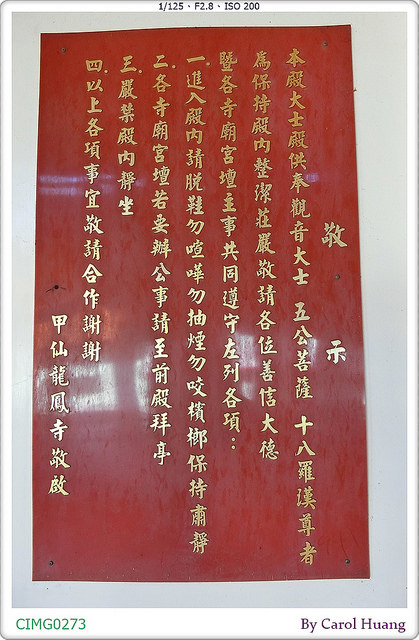 1/125、F2.8、ISO 200
敬示
本殿大士殿供奉觀音大士 五公菩薩 十八羅漢尊者
為保持殿內整潔莊嚴敬請各位善信大德
暨各寺廟宮壇主事共同遵守左列各項：
一.進入殿內請脱鞋勿喧嘩勿抽煙勿咬檳榔保持肅靜
二.各寺廟宮壇若要辦公事請至前殿拜亭
三.嚴禁殿內靜坐
四.以上各項事宜敬請合作謝謝
甲仙龍鳳寺敬啟
CIMG0273
By Carol Huang